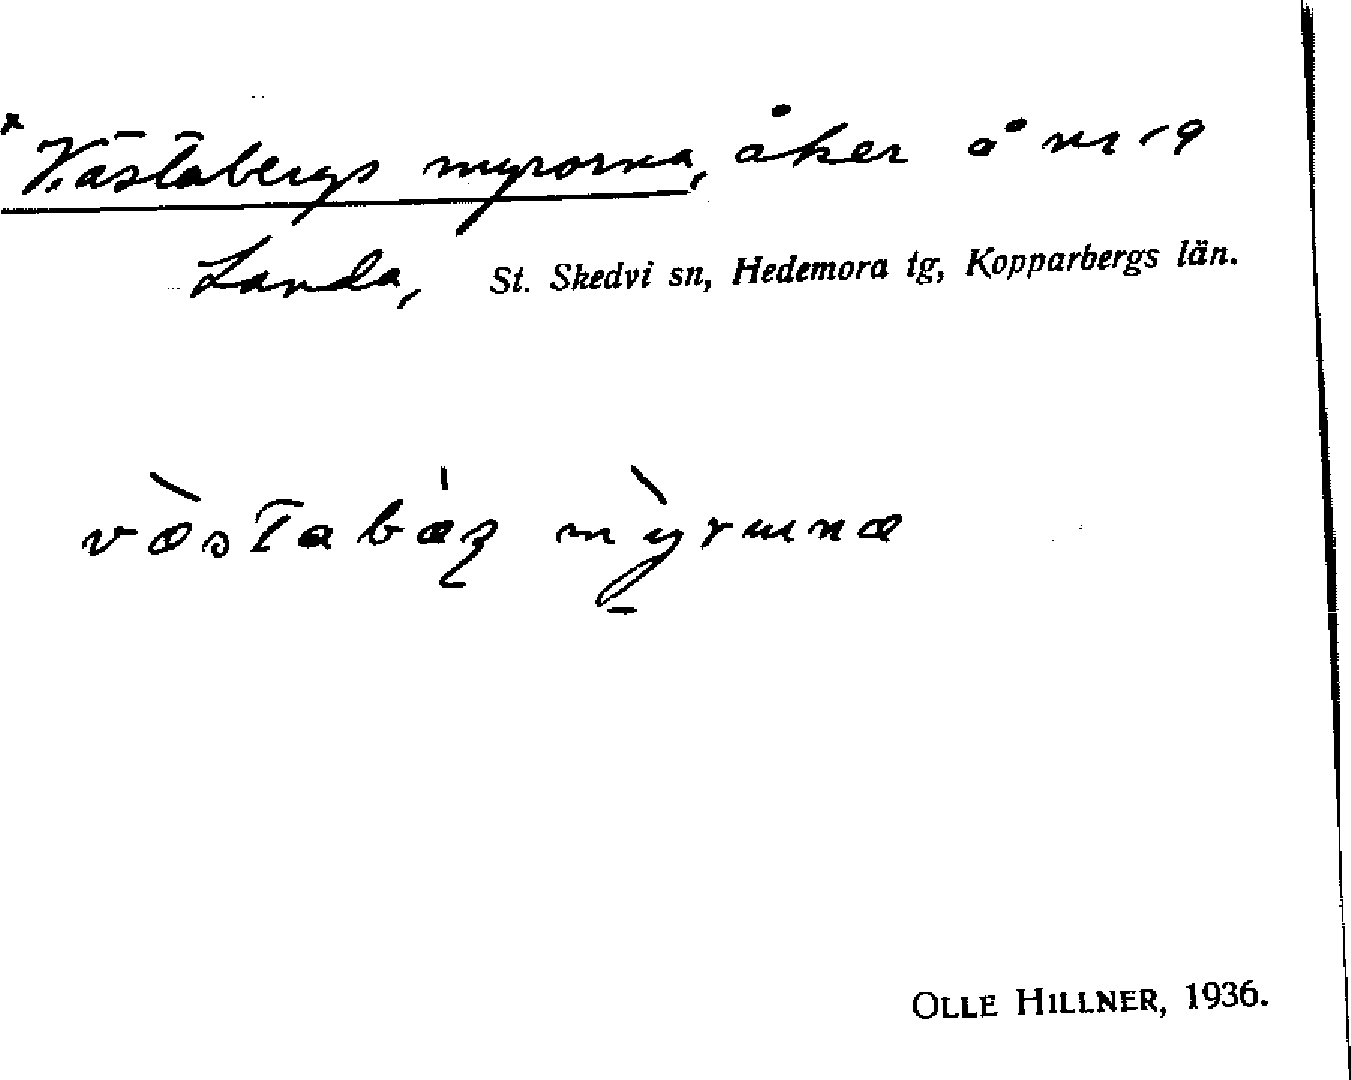 * Västabergs myrorna, åker å nr 19
Landa, St. Skedvi sn, Hedemora tg, Kopparbergs län.
OLLE HILLNER, 1936.